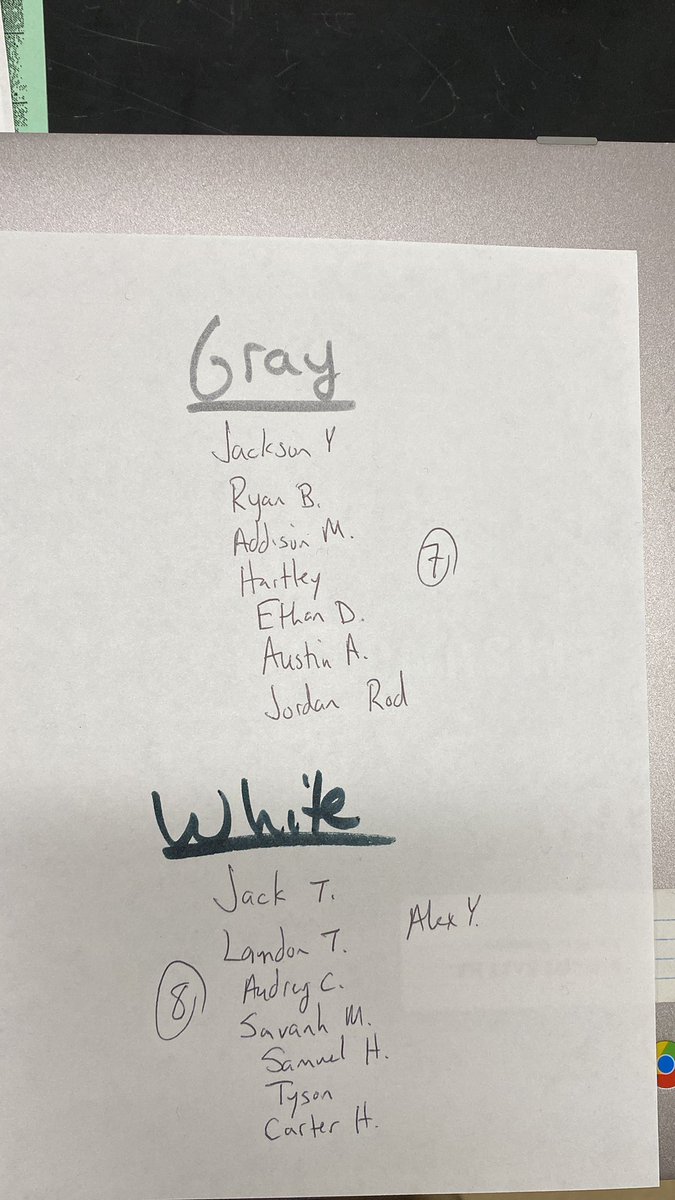 Gray
Jackson Y
Ryan B.
Addison M.
Hartley
7
Ethan D.
Austin A.
Jordan Rod
White
Jack T.
Alex Y.
Landon T.
Audrey C.
8
Savanh M.
Samuel H.
Tyson
Carter H.